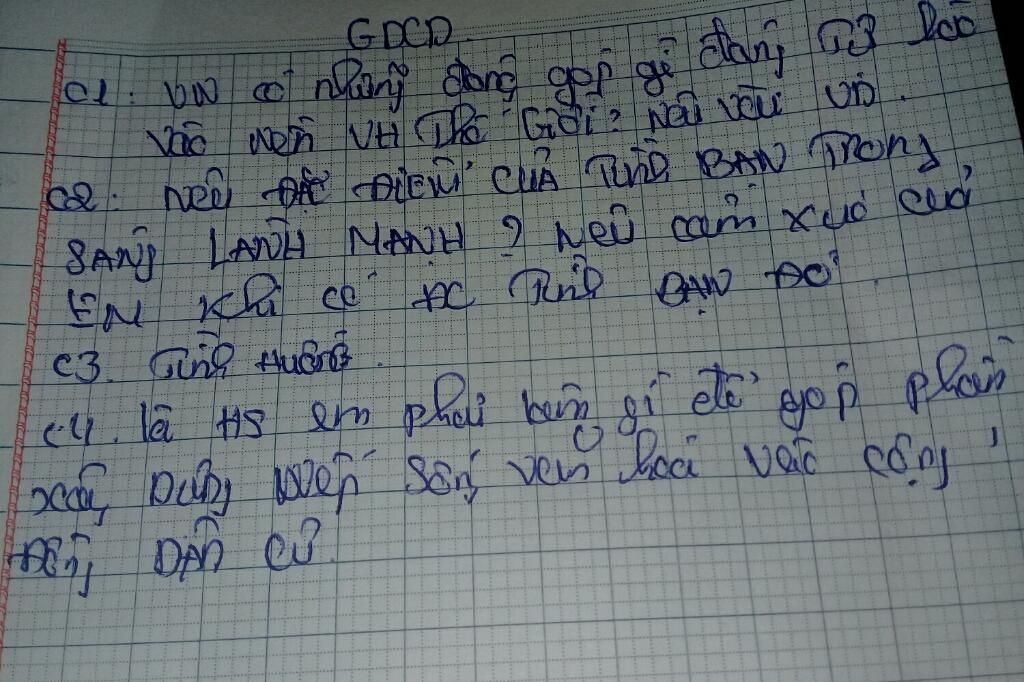 GDCD
C1: VN có những đóng góp gì đáng Tự hào
vào nền VH Thế Giới? Nêu vài VD.
C2: Nêu ĐẶC ĐIỂM CỦA Tình BẠN Trong
SÁNG LÀNH MẠNH? Nêu cảm xúc của
EM Khi có ĐC Tình BẠN ĐÓ
C3. Tình HUỐNG.
C4. là HS em phải làm gì để góp phần
xây Dựng nếp sống văn hoá Vào cộng
ĐỒNG DÂN CƯ